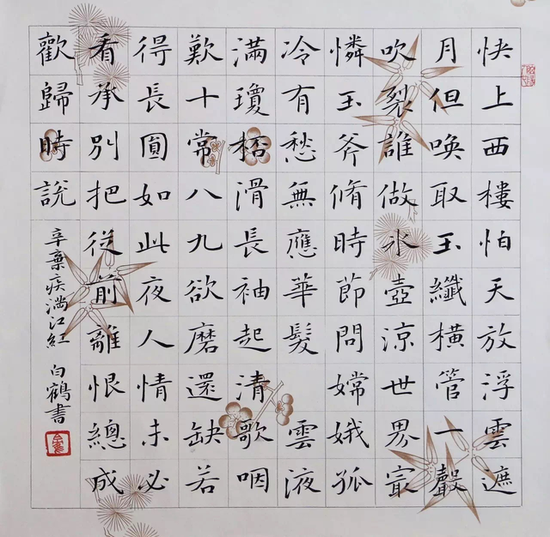 快上西樓怕天放浮雲遮
月但喚取玉纖橫管一聲
吹裂誰做氷壺涼世界㝡
憐玉斧脩時節問嫦娥孤
冷有愁無應華髮 雲液
滿瓊桮滑長袖起清歌咽
歎十常八九欲磨還缺若
得長圓如此夜人情未必
看承別把從前離恨總成
歡歸時說
辛棄疾滿江紅 白鶴書